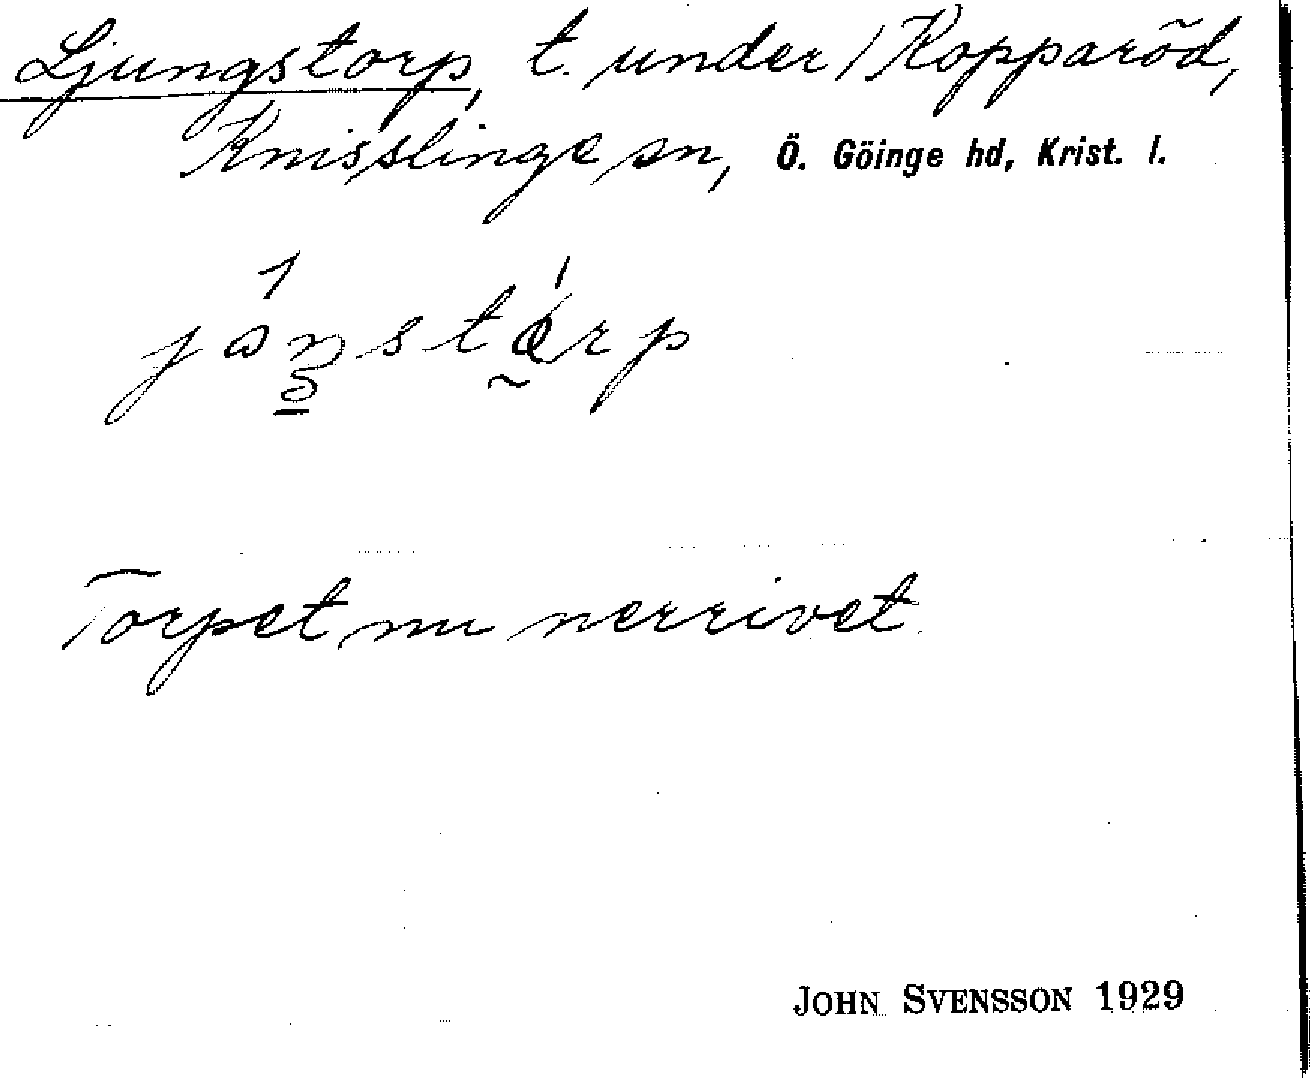 Ljungstorp, t. under Kopparöd,
Knisslinge sn, Ö. Göinge hd, Krist. l.
Torpet nu nerrivet.
JOHN SVENSSON 1929